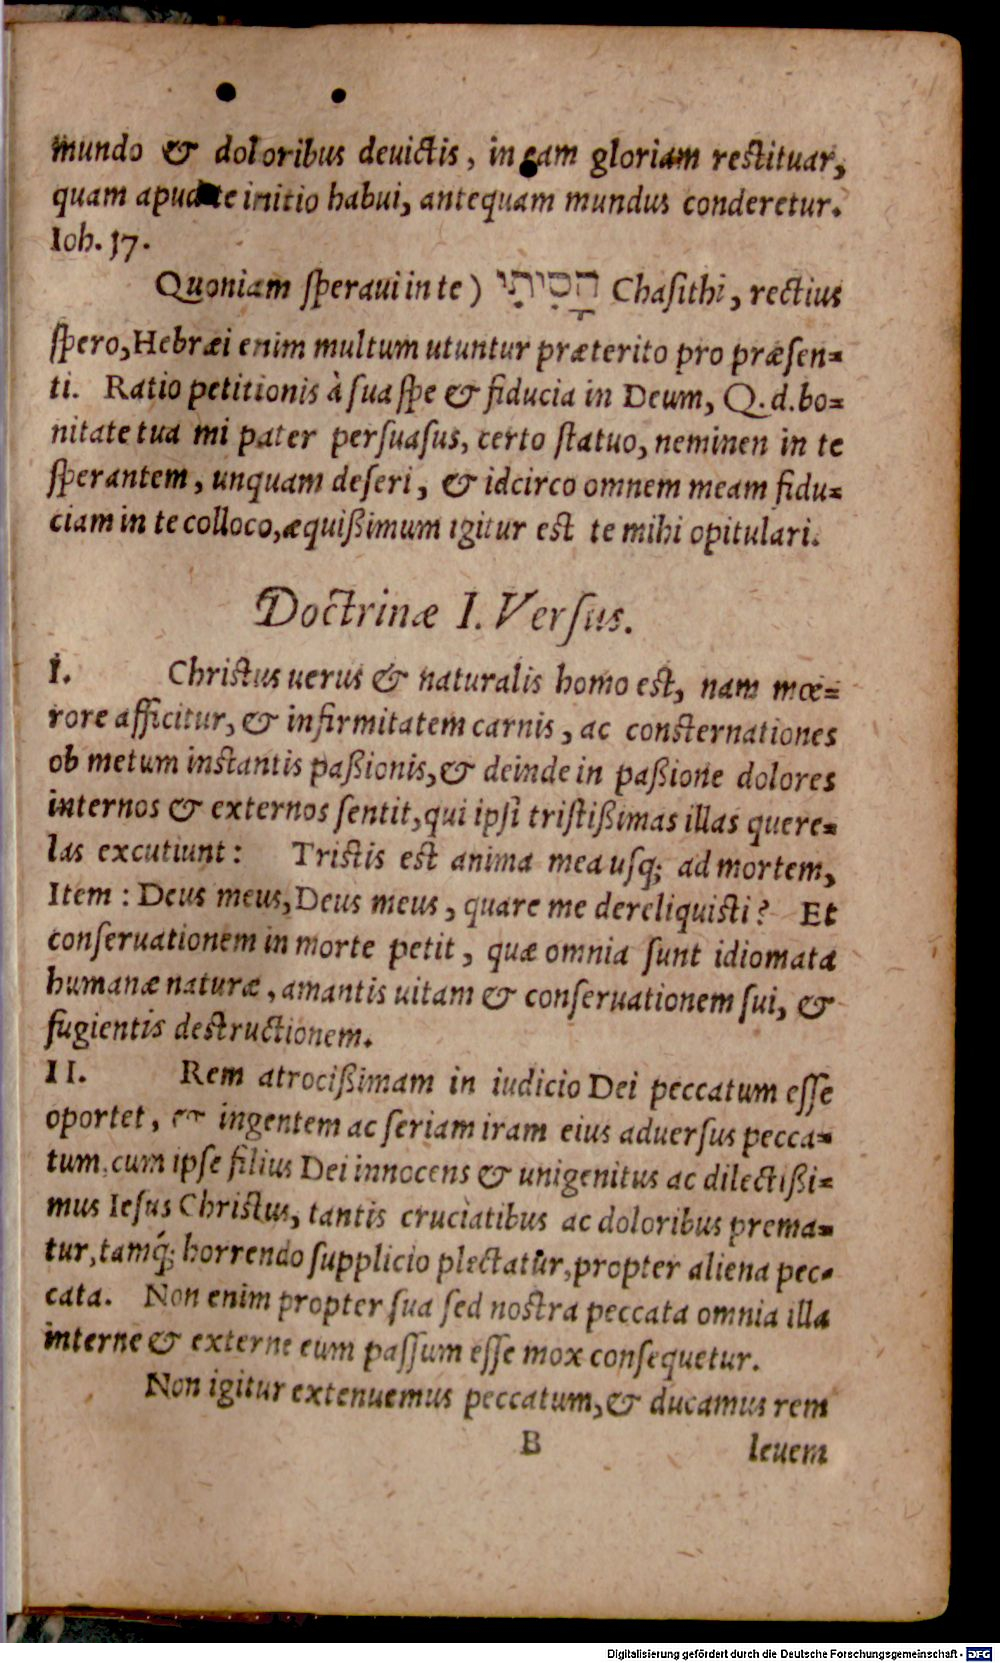 mundo & doloribus deuictis, in eam gloriam restituar,
quam apud te initio habui, antequam mundus conderetur.
Ioh. 17.
Quoniam speraui in te) חָסִיתִי Chasithi, rectius
spero, Hebræi enim multum utuntur præterito pro præsen=
ti. Ratio petitionis à sua spe & fiducia in Deum, Q. d. bo=
nitate tua mi pater persuasus, certo statuo, neminen in te
sperantem, unquam deseri, & idcirco omnem meam fidu=
ciam in te colloco, æquißimum igitur est te mihi opitulari.
Doctrinæ I. Versus.
I. Christus uerus & naturalis homo est, nam mœ=
rore afficitur, & infirmitatem carnis, ac consternationes
ob metum instantis paßionis, & deinde in paßione dolores
internos & externos sentit, qui ipsi tristißimas illas quere=
las excutiunt: Tristis est anima mea usq; ad mortem,
Item: Deus meus, Deus meus, quare me dereliquisti? Et
conseruationem in morte petit, quæ omnia sunt idiomata
humanæ naturæ, amantis uitam & conseruationem sui, &
fugientis destructionem.
II. Rem atrocißimam in iudicio Dei peccatum esse
oportet, & ingentem ac seriam iram eius aduersus pecca=
tum, cum ipse filius Dei innocens & unigenitus ac dilectißi=
mus Iesus Christus, tantis cruciatibus ac doloribus prema=
tur, tamq́; horrendo supplicio plectatur, propter aliena pec=
cata. Non enim propter sua sed nostra peccata omnia illa
interne & externe eum passum esse mox consequetur.
Non igitur extenuemus peccatum, & ducamus rem
B leuem
Digitalisierung gefördert durch die Deutsche Forschungsgemeinschaft - DFG